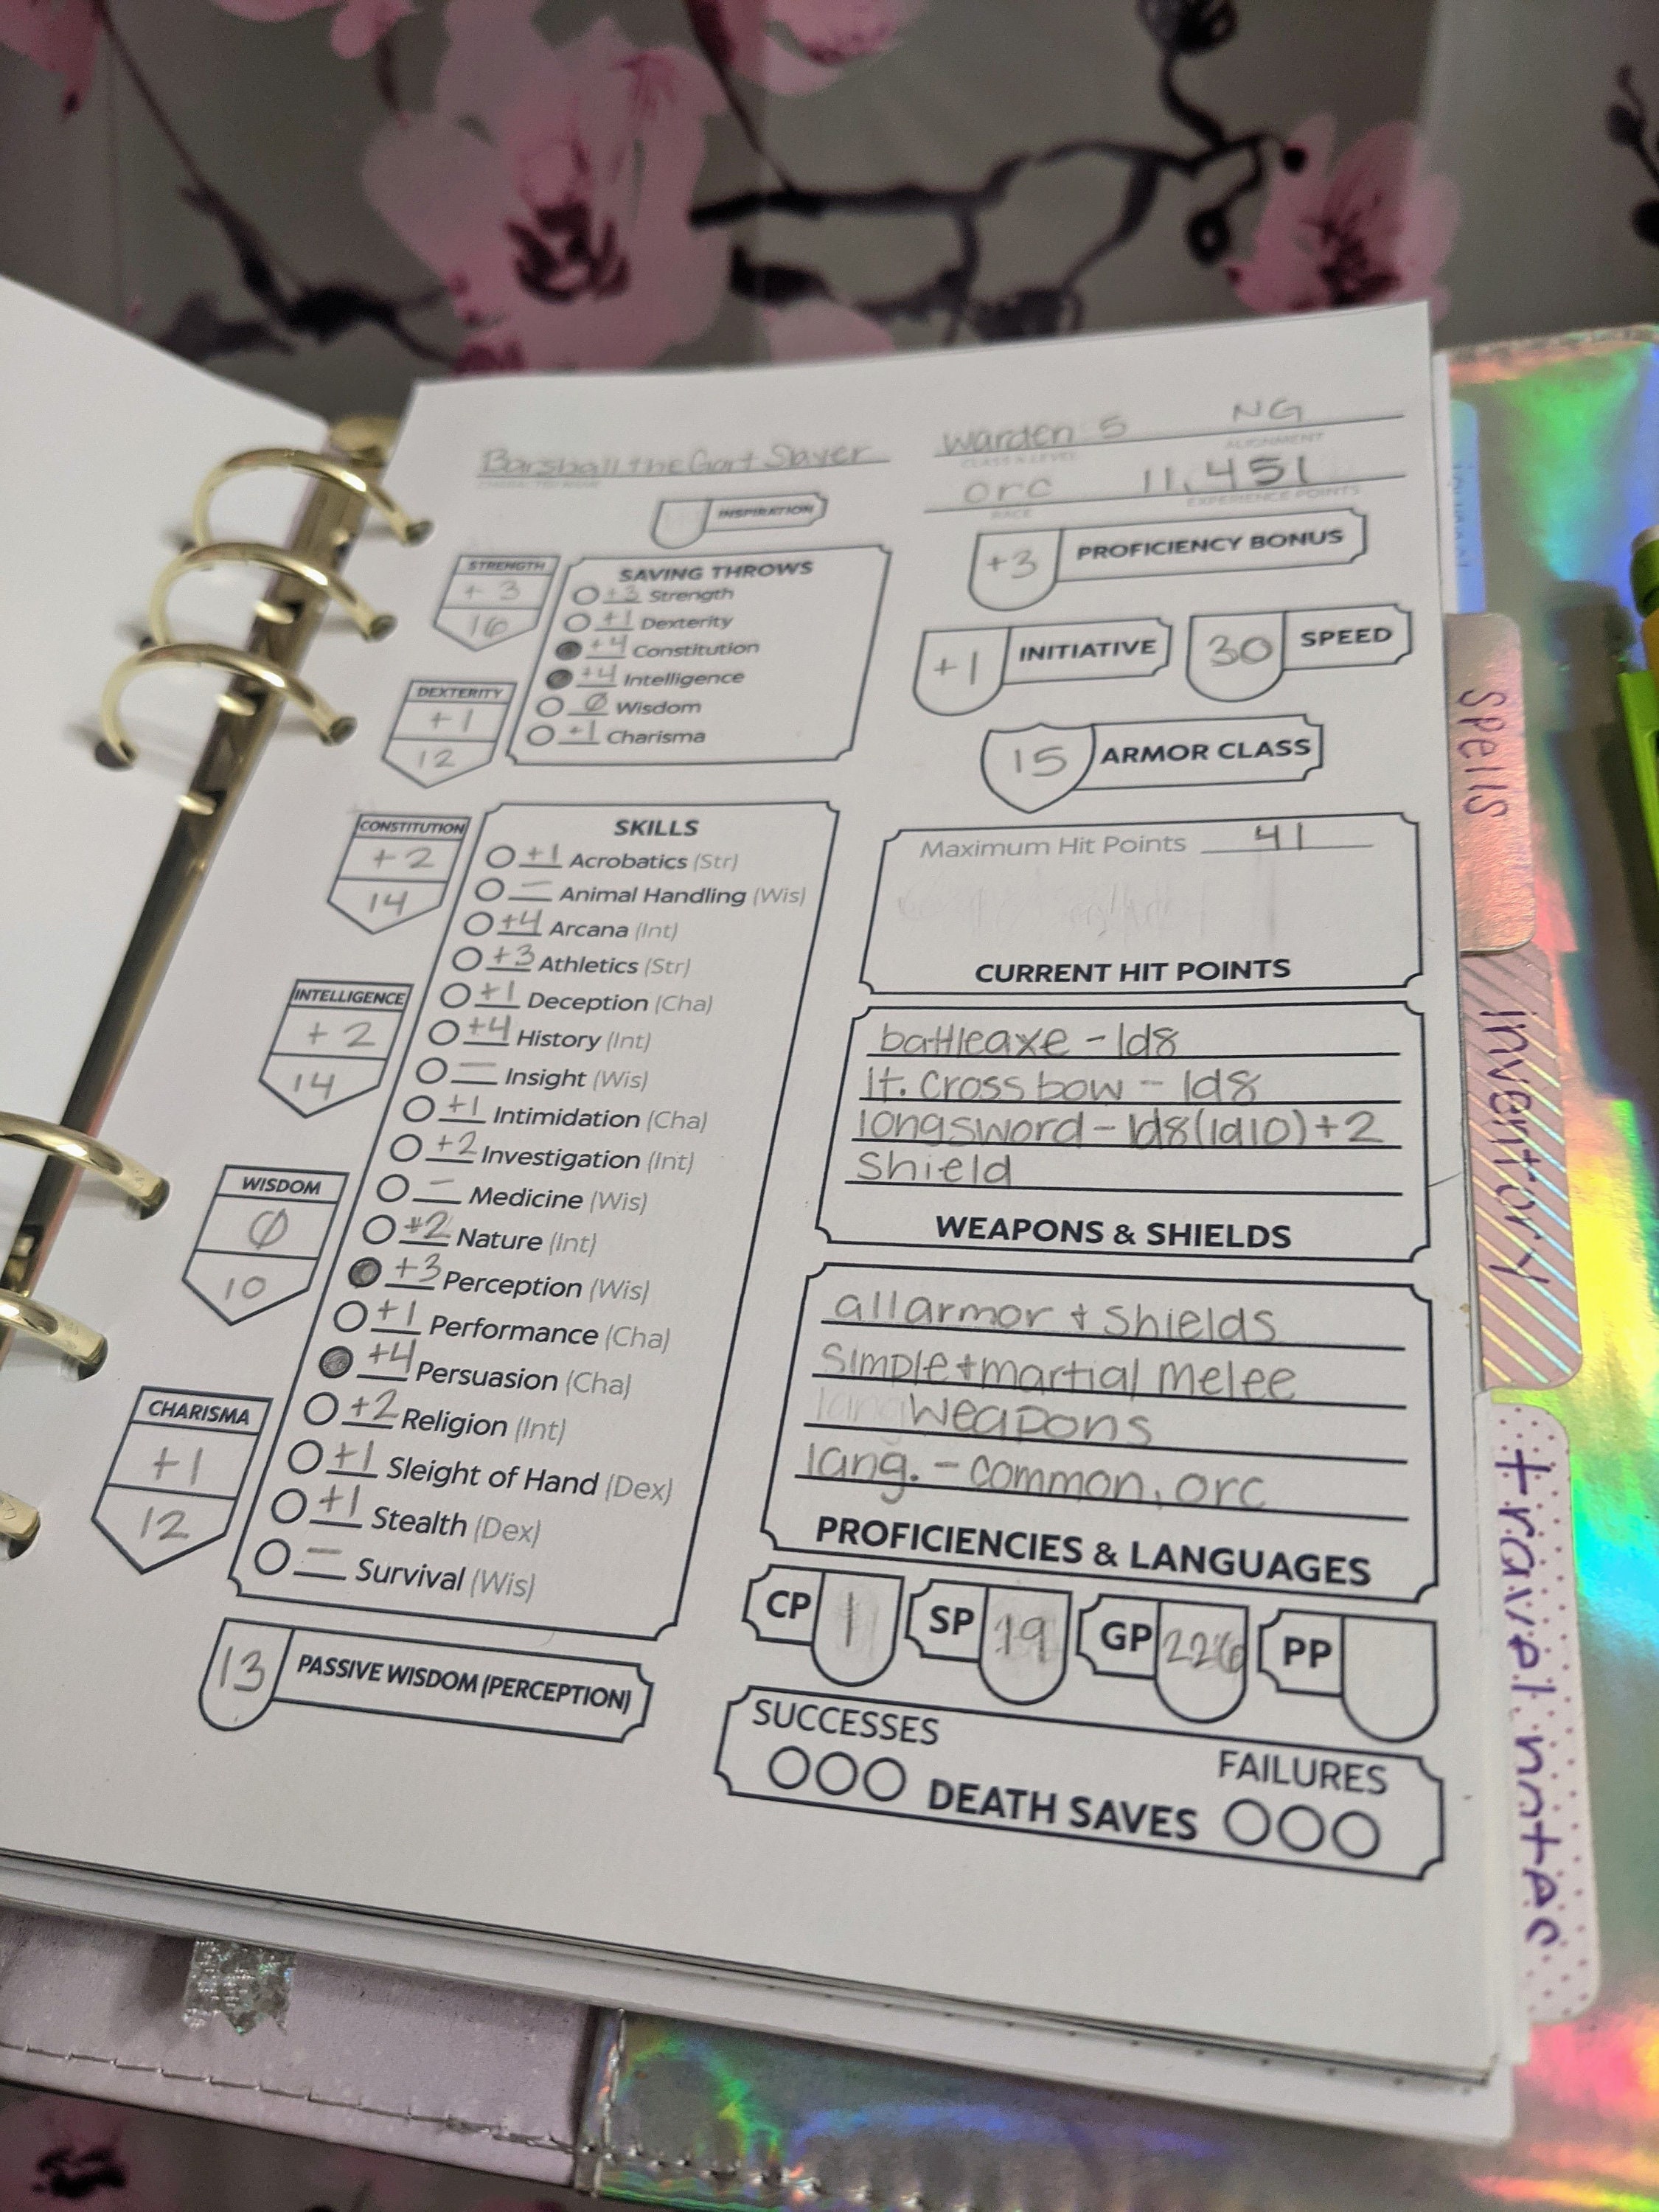 Barshall the Gort Slayer
CHARACTER NAME
Warden 5 NG
CLASS & LEVEL ALIGNMENT
orc 11,451
RACE EXPERIENCE POINTS
INSPIRATION
+3 PROFICIENCY BONUS
STRENGTH
+3
16
DEXTERITY
+1
12
CONSTITUTION
+2
14
INTELLIGENCE
+2
14
WISDOM
Ø
10
CHARISMA
+1
12
SAVING THROWS
+3 Strength
+1 Dexterity
+4 Constitution
+4 Intelligence
Ø Wisdom
+1 Charisma
SKILLS
+1 Acrobatics (Str)
— Animal Handling (Wis)
+4 Arcana (Int)
+3 Athletics (Str)
+1 Deception (Cha)
+4 History (Int)
— Insight (Wis)
+1 Intimidation (Cha)
+2 Investigation (Int)
— Medicine (Wis)
+2 Nature (Int)
+3 Perception (Wis)
+1 Performance (Cha)
+4 Persuasion (Cha)
+2 Religion (Int)
+1 Sleight of Hand (Dex)
+1 Stealth (Dex)
— Survival (Wis)
13 PASSIVE WISDOM (PERCEPTION)
+1 INITIATIVE 30 SPEED
15 ARMOR CLASS
Maximum Hit Points 41
CURRENT HIT POINTS
battleaxe - 1d8
lt. crossbow - 1d8
longsword - 1d8(1d10)+2
Shield
WEAPONS & SHIELDS
all armor + shields
simple + martial melee
weapons
lang. - common, orc
PROFICIENCIES & LANGUAGES
CP 1 SP 19 GP 226 PP
SUCCESSES FAILURES
DEATH SAVES
spells
inventory
travel notes